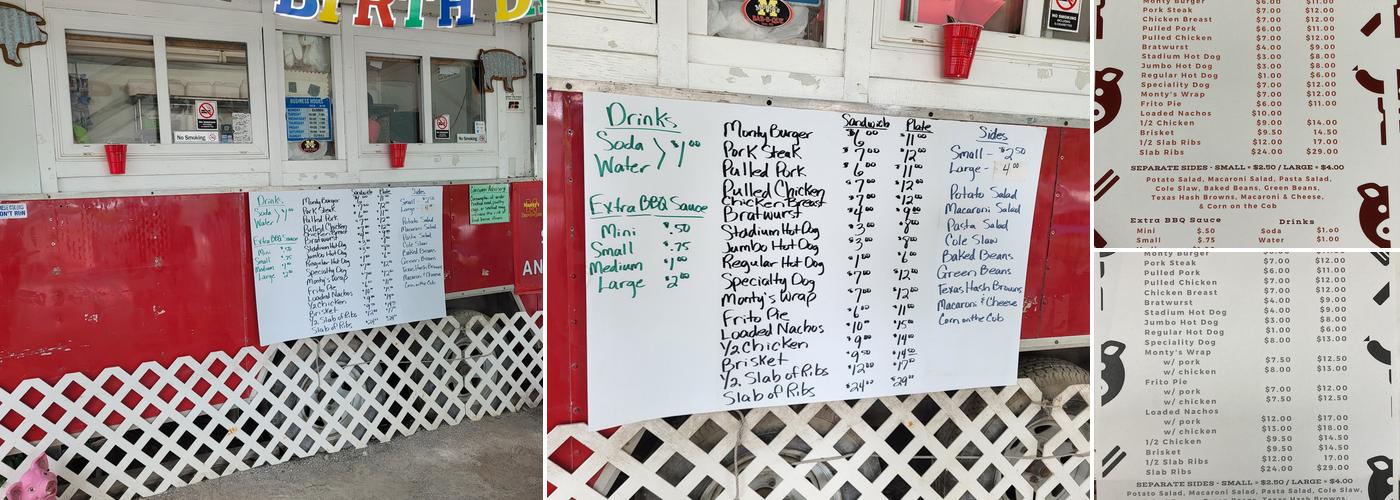 BIRTHD
BUSINESS HOURS
No Smoking
DON'T RUN
Drinks
Soda > $1.00
Water
Extra BBQ Sauce
Mini $.50
Small $.75
Medium $1.00
Large $2.00
Sandwich Plate
Monty Burger
Pork Steak
Pulled Pork
Pulled Chicken
Chicken Breast
Bratwurst
Stadium Hot Dog
Jumbo Hot Dog
Regular Hot Dog
Specialty Dog
Monty's Wrap
Frito Pie
Loaded Nachos
1/2 Chicken
Brisket
1/2 Slab of Ribs
Slab of Ribs
Sides
Small
Large
Potato Salad
Macaroni Salad
Pasta Salad
Cole Slaw
Baked Beans
Green Beans
Texas Hash Browns
Macaroni & Cheese
Corn on the Cob
Consumer Advisory
AN
M
BAR-B-QUE
NO SMOKING
Drinks
Soda > $1.00
Water
Extra BBQ Sauce
Mini $.50
Small $.75
Medium $1.00
Large $2.00
Sandwich Plate
Monty Burger $6.00 $11.00
Pork Steak $7.00 $12.00
Pulled Pork $6.00 $11.00
Pulled Chicken $7.00 $12.00
Chicken Breast $7.00 $12.00
Bratwurst $4.00 $9.00
Stadium Hot Dog $3.00 $8.00
Jumbo Hot Dog $3.00 $8.00
Regular Hot Dog $1.00 $6.00
Specialty Dog $7.00 $12.00
Monty's Wrap $7.00 $12.00
Frito Pie $6.00 $11.00
Loaded Nachos $10.00 $15.00
1/2 Chicken $9.00 $14.00
Brisket $9.50 $14.50
1/2 Slab of Ribs $12.00 $17.00
Slab of Ribs $24.00 $29.00
Sides
Small - $2.50
Large - 4.00
Potato Salad
Macaroni Salad
Pasta Salad
Cole Slaw
Baked Beans
Green Beans
Texas Hash Browns
Macaroni & Cheese
Corn on the Cob
Monty Burger $6.00 $11.00
Pork Steak $7.00 $12.00
Chicken Breast $7.00 $12.00
Pulled Pork $6.00 $11.00
Pulled Chicken $7.00 $12.00
Bratwurst $4.00 $9.00
Stadium Hot Dog $3.00 $8.00
Jumbo Hot Dog $3.00 $8.00
Regular Hot Dog $1.00 $6.00
Speciality Dog $7.00 $12.00
Monty's Wrap $7.00 $12.00
Frito Pie $6.00 $11.00
Loaded Nachos $10.00
1/2 Chicken $9.00 $14.00
Brisket $9.50 14.50
1/2 Slab Ribs $12.00 17.00
Slab Ribs $24.00 $29.00
SEPARATE SIDES - SMALL = $2.50 / LARGE = $4.00
Potato Salad, Macaroni Salad, Pasta Salad,
Cole Slaw, Baked Beans, Green Beans,
Texas Hash Browns, Macaroni & Cheese,
& Corn on the Cob
Extra BBQ Sauce Drinks
Mini $.50 Soda $1.00
Small $.75 Water $1.00
Monty Burger
Pork Steak $7.00 $12.00
Pulled Pork $6.00 $11.00
Pulled Chicken $7.00 $12.00
Chicken Breast $7.00 $12.00
Bratwurst $4.00 $9.00
Stadium Hot Dog $4.00 $9.00
Jumbo Hot Dog $3.00 $8.00
Regular Hot Dog $1.00 $6.00
Speciality Dog $8.00 $13.00
Monty's Wrap
w/ pork $7.50 $12.50
w/ chicken $8.00 $13.00
Frito Pie
w/ pork $7.00 $12.00
w/ chicken $7.50 $12.50
Loaded Nachos
w/ pork $12.00 $17.00
w/ chicken $13.00 $18.00
1/2 Chicken $9.50 $14.50
Brisket $9.50 $14.50
1/2 Slab Ribs $12.00 17.00
Slab Ribs $24.00 $29.00
SEPARATE SIDES - SMALL = $2.50 / LARGE = $4.00
Potato Salad, Macaroni Salad, Pasta Salad, Cole Slaw,